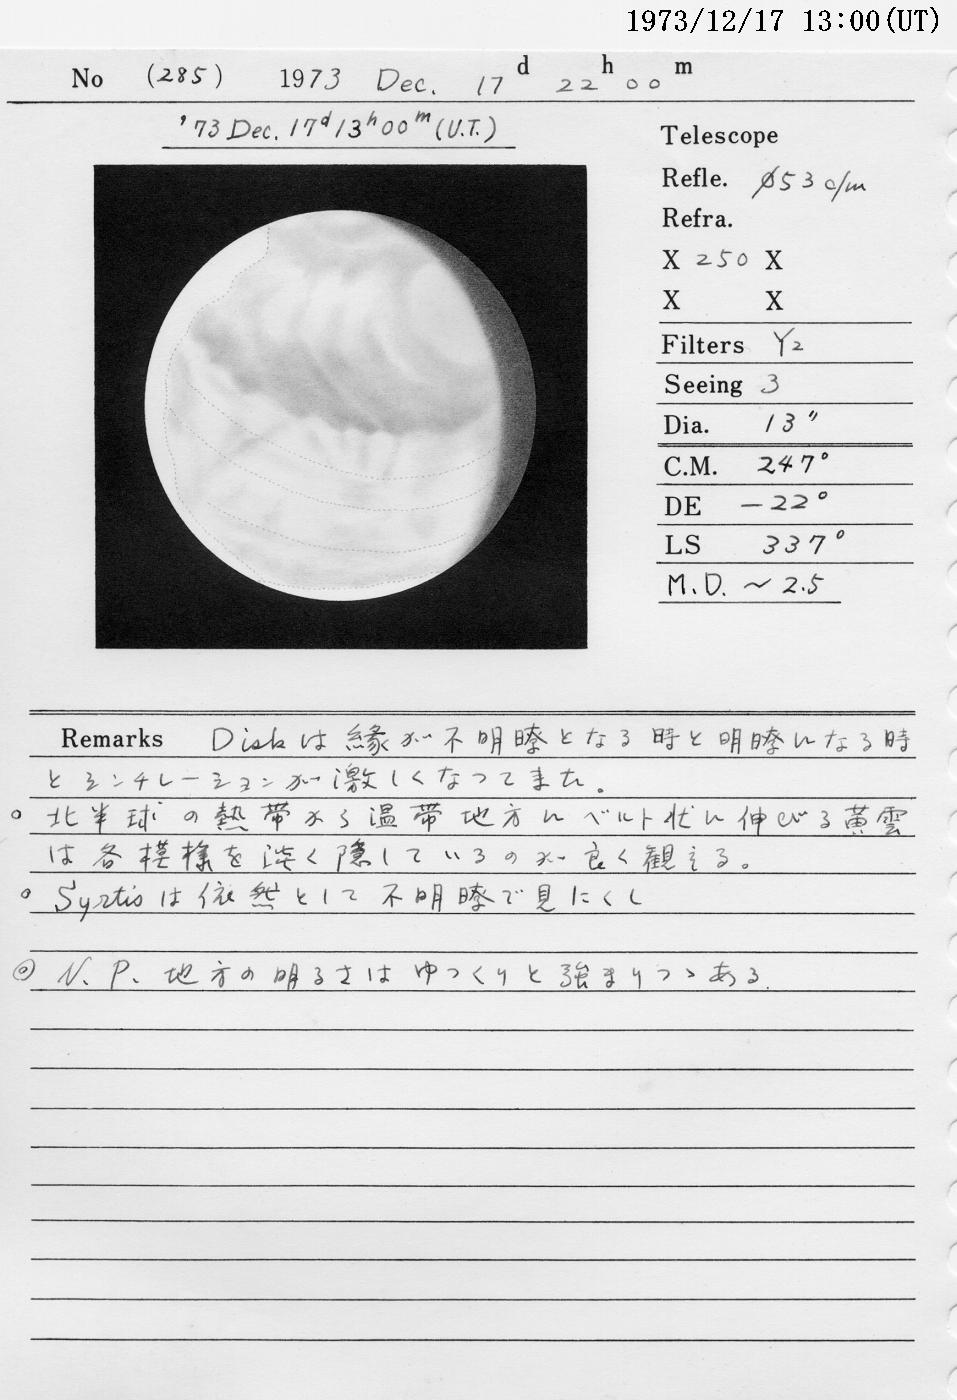 1973/12/17 13:00(UT)
No (285) 1973 Dec. 17 d 22 h 00 m
'73 Dec. 17d 13h 00m (U.T.)
Telescope
Refle. ∅53 c/m
Refra.
X 250 X
X X
Filters Y2
Seeing 3
Dia. 13"
C.M. 247°
DE -22°
LS 337°
M.D. ~ 2.5
Remarks Diskは縁が不明瞭となる時と明瞭になる時
とシンチレーションが激しくなってきた。
○ 北半球の熱帯から温帯地方にベルト状に伸びる黄雲
は各模様を淡く隠しているのが良く観える。
○ Syrtisは依然として不明瞭で見にくし
◎ N.P.地方の明るさはゆっくりと強まりつゝある.